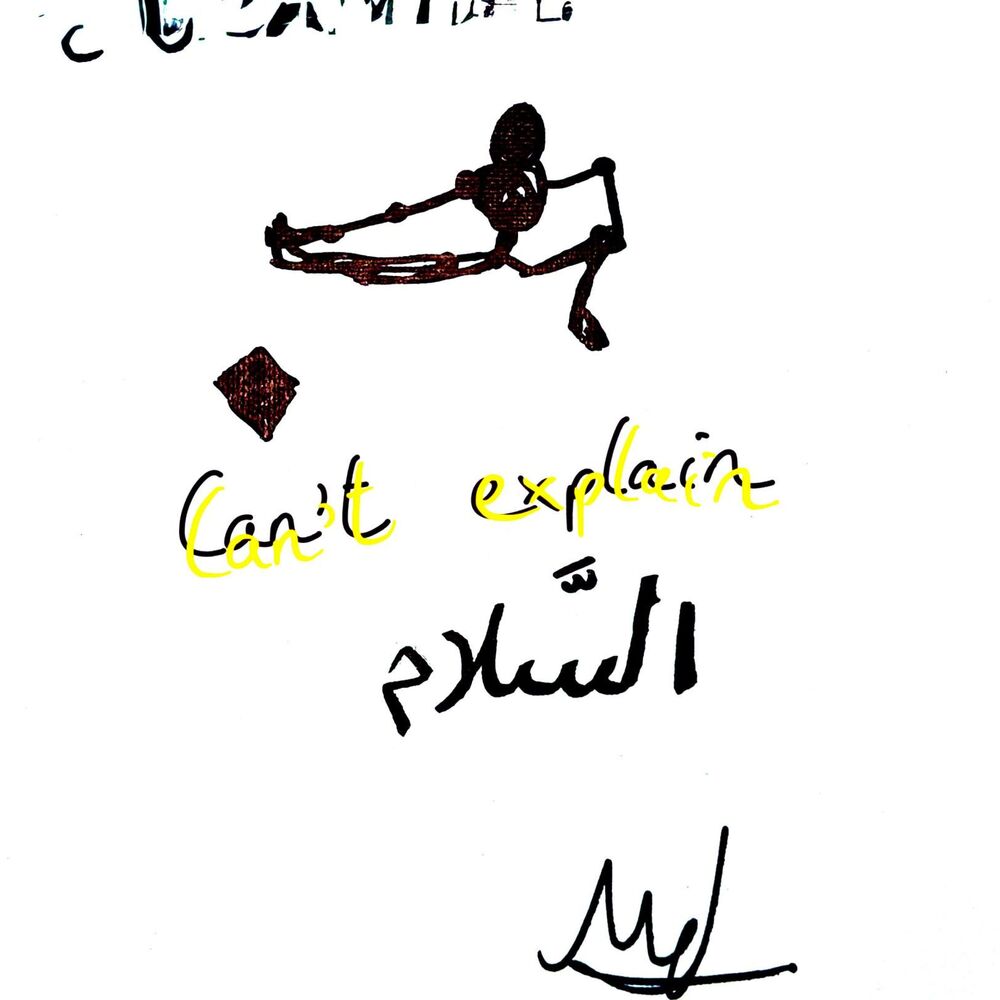 Can't explain
السَّلام
Md